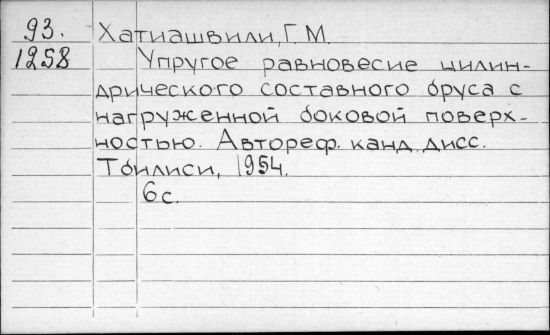 93. Хатиашвили, Г.М.
1258 Упругое равновесие цилин-
дрического составного бруса с
нагруженной боковой поверх-
ностью. Автореф. канд. дисс.
Тбилиси, 1954.
6 с.